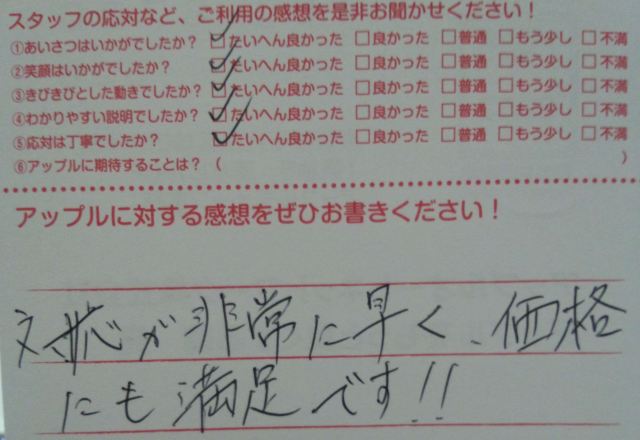 スタッフの応対など、ご利用の感想を是非お聞かせください！
①あいさつはいかがでしたか？ ☑たいへん良かった □良かった □普通 □もう少し □不満
②笑顔はいかがでしたか？ ☑たいへん良かった □良かった □普通 □もう少し □不満
③きびきびとした動きでしたか？ ☑たいへん良かった □良かった □普通 □もう少し □不満
④わかりやすい説明でしたか？ ☑たいへん良かった □良かった □普通 □もう少し □不満
⑤応対は丁寧でしたか？ ☑たいへん良かった □良かった □普通 □もう少し □不満
⑥アップルに期待することは？（ ）
アップルに対する感想をぜひお書きください！
対応が非常に早く、価格
にも満足です!!